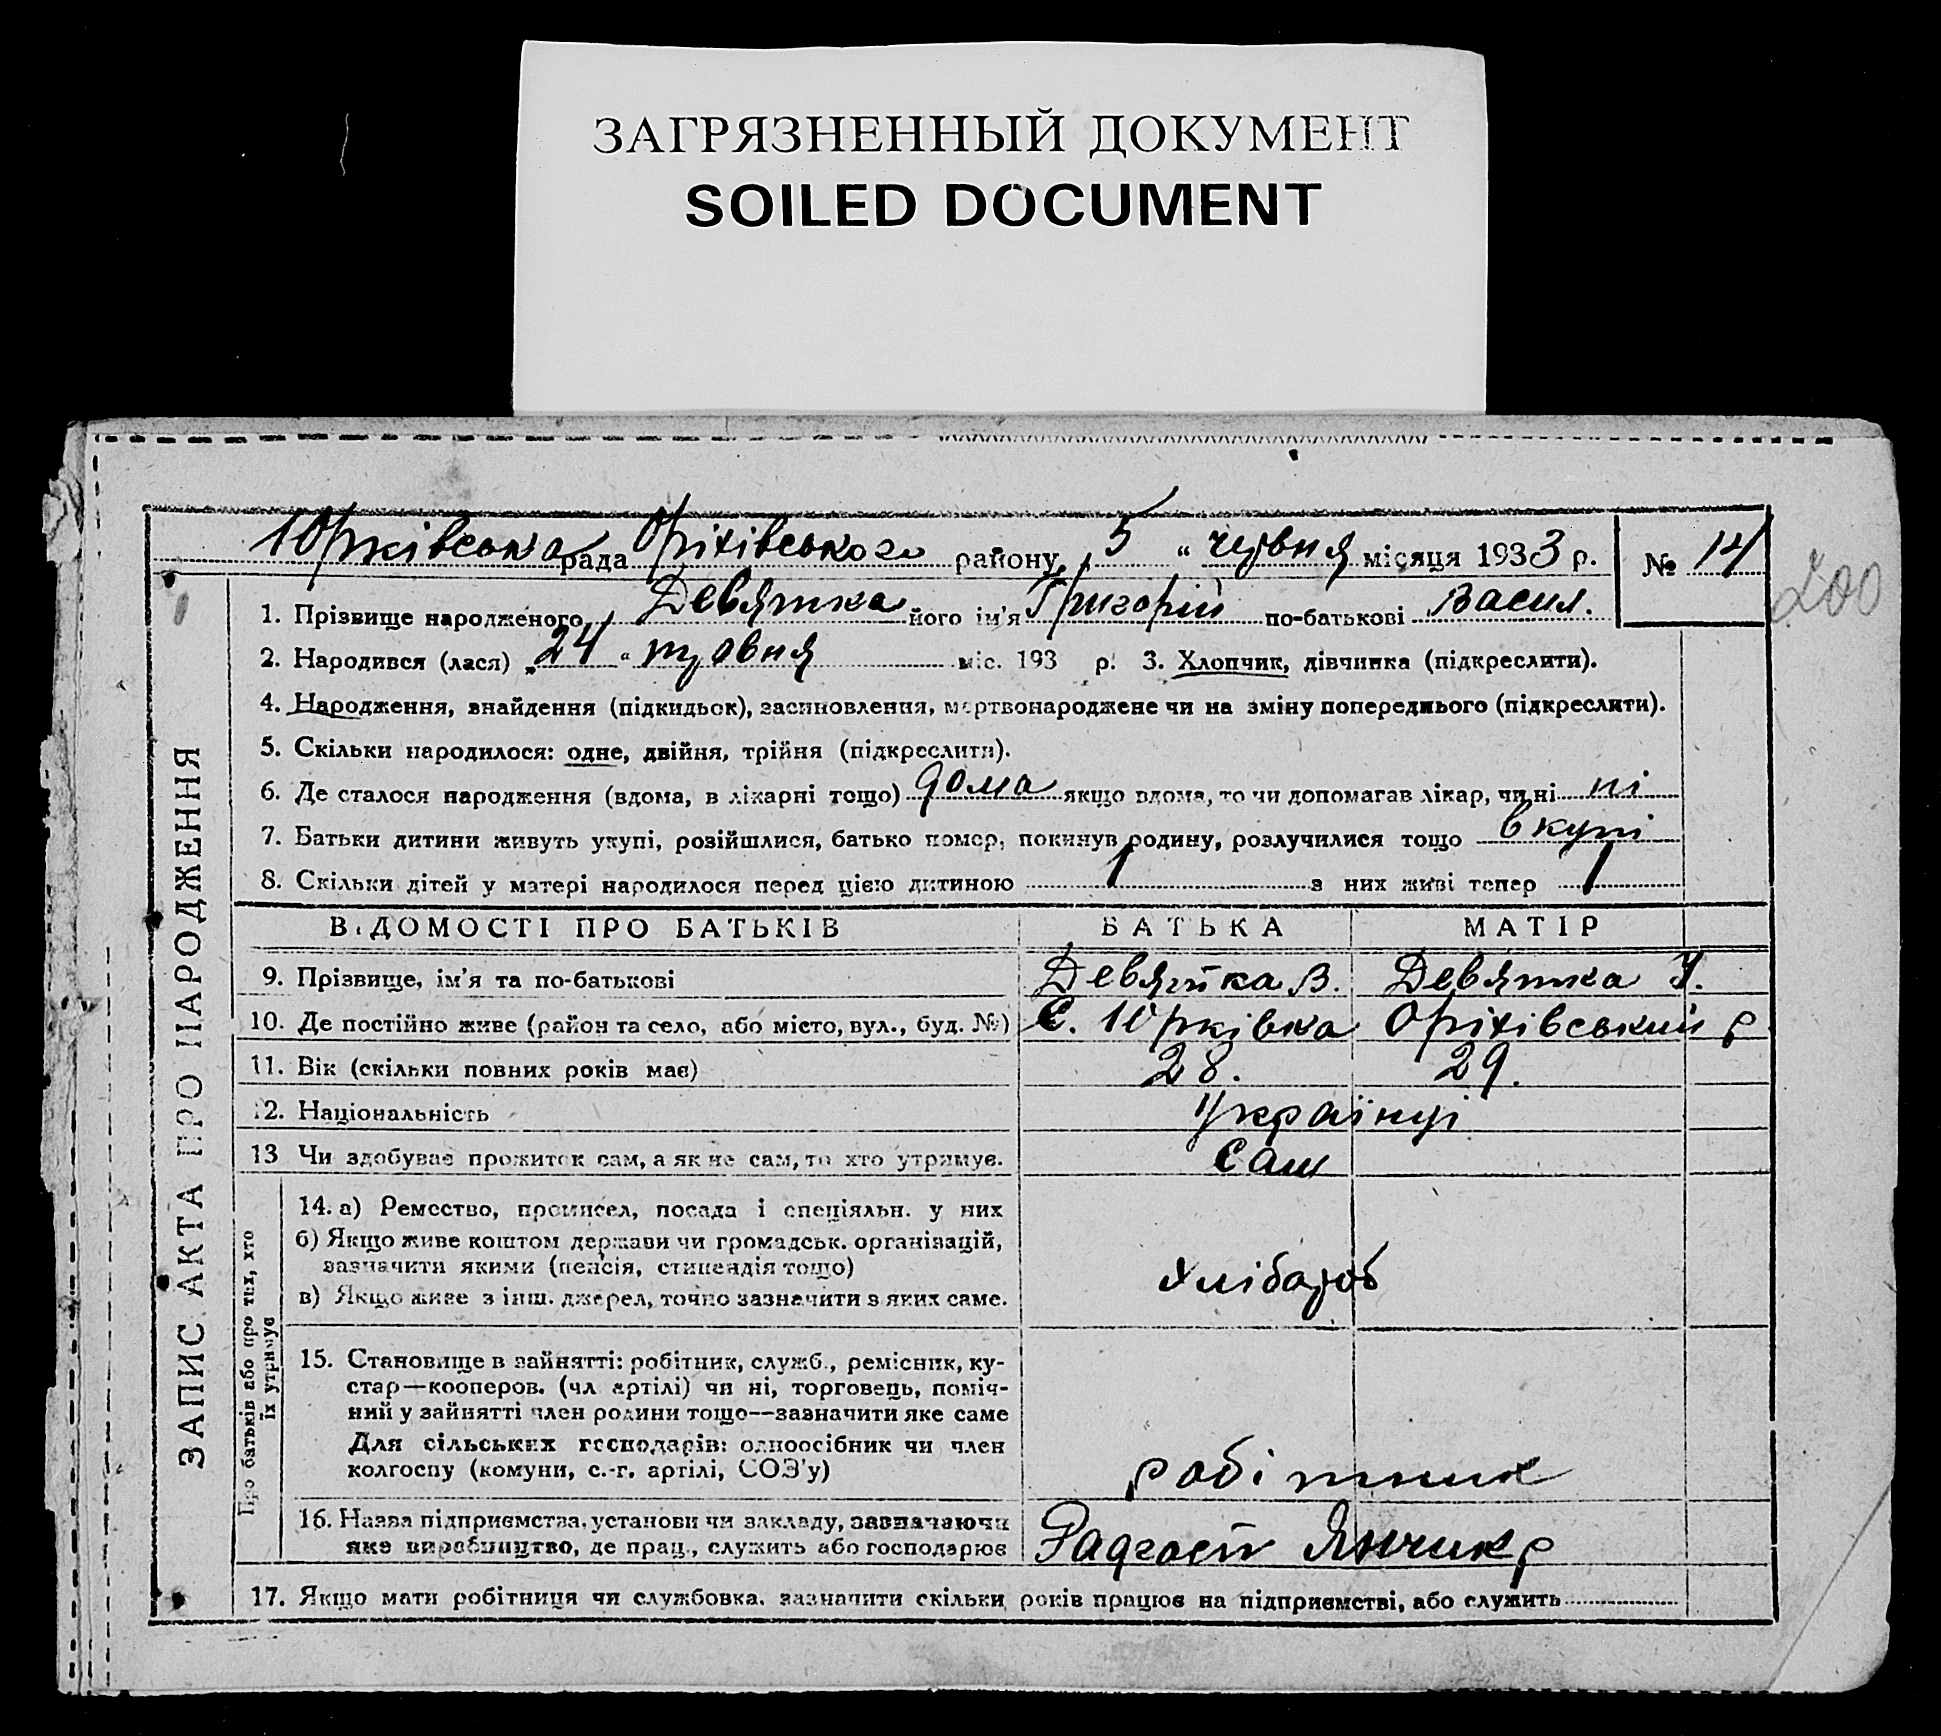 ЗАГРЯЗНЕННЫЙ ДОКУМЕНТ
SOILED DOCUMENT
Юрківська рада Оріхівського району „5“ червня місяця 1933 р. № 14
200
1. Прізвище народженого Девятка його ім'я Григорій по-батькові Васил.
2. Народився (лася) „24“ травня міс. 193 р. 3. Хлопчик, дівчинка (підкреслити).
4. Народження, знайдення (підкидьок), засиновлення, мертвонароджене чи на зміну попереднього (підкреслити).
5. Скільки народилося: одне, двійня, трійня (підкреслити).
6. Де сталося народження (вдома, в лікарні тощо) дома якщо вдома, то чи допомагав лікар, чи ні ні
7. Батьки дитини живуть укупі, розійшлися, батько помер, покинув родину, розлучилися тощо вкупі
8. Скільки дітей у матері народилося перед цією дитиною 1 з них живі тепер 1
ЗАПИС АКТА ПРО НАРОДЖЕННЯ
ВІДОМОСТІ ПРО БАТЬКІВ БАТЬКА МАТІР
9. Прізвище, ім'я та по-батькові Девятка В. Девятка У.
10. Де постійно живе (район та село, або місто, вул., буд. №) С. Юрківка Оріхівський р
11. Вік (скільки повних років має) 28. 29.
12. Національність Українці
13 Чи здобуває прожиток сам, а як не сам, то хто утримує. Сам
Про батьків або про тих, хто
їх утримує
14. а) Ремество, промисел, посада і спеціяльн. у них
б) Якщо живе коштом держави чи громадськ. організацій,
зазначити якими (пенсія, стипендія тощо)
в) Якщо живе з інш. джерел, точно зазначити з яких саме.
хлібороб
15. Становище в зайнятті: робітник, служб., ремісник, ку-
стар—кооперов. (чл артілі) чи ні, торговець, поміч-
ний у зайнятті член родини тощо—зазначити яке саме
Для сільських господарів: одноосібник чи член
колгоспу (комуни, с.-г. артілі, СОЗ'у)
робітник
16. Назва підприємства, установи чи закладу, зазначаючи
яке виробництво, де прац., служить або господарює
Радгосп
17. Якщо мати робітниця чи службовка, зазначити скільки років працює на підприємстві, або служить